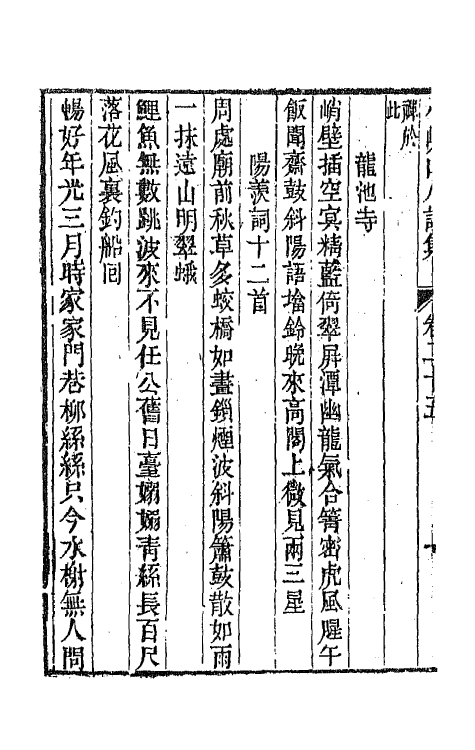 禪於
此
龍池寺
峭壁插空冥精藍倚翠屏潭幽龍氣合箐密虎風腥午
飯聞齋鼓斜陽語塔鈴晚來高閣上微見兩三星
陽羨詞十二首
周處廟前秋草多蛟橋如畫鎖煙波斜陽簫鼓散如雨
一抹遠山明翠蛾
鯉魚無數跳波來不見任公舊日臺嫋嫋青絲長百尺
落花風裏釣船回
暢好年光三月時家家門巷柳絲絲只今水榭無人問